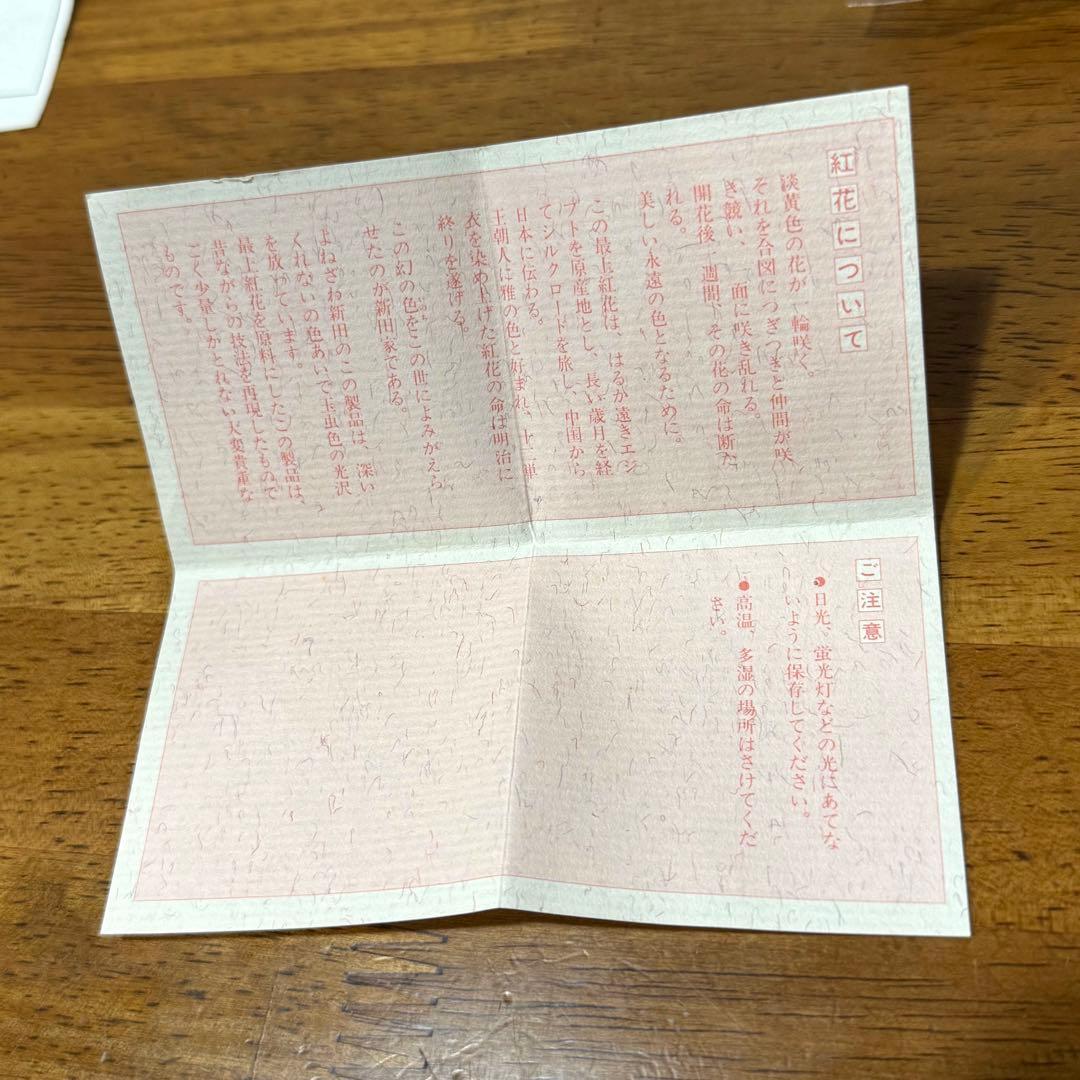 紅花について
淡黄色の花が一輪咲く。
それを合図につぎつぎと仲間が咲
き競い、一面に咲き乱れる。
開花後一週間、その花の命は断た
れる。
美しい永遠の色となるために。
この最上紅花は、はるか遠きエジ
プトを原産地とし、長い歳月を経
てシルクロードを旅し、中国から
日本に伝わる。
王朝人に雅の色と好まれ、十二単
衣を染め上げた紅花の命は明治に
終りを遂げる。
この幻の色をこの世によみがえら
せたのが新田家である。
よねざわ新田のこの製品は、深い
くれないの色あいで玉虫色の光沢
を放っています。
最上紅花を原料にしたこの製品は、
昔ながらの技法を再現したもので
ごく少量しかとれない大変貴重な
ものです。
ご注意
●日光、蛍光灯などの光にあてな
いように保存してください。
●高温、多湿の場所はさけてくだ
さい。